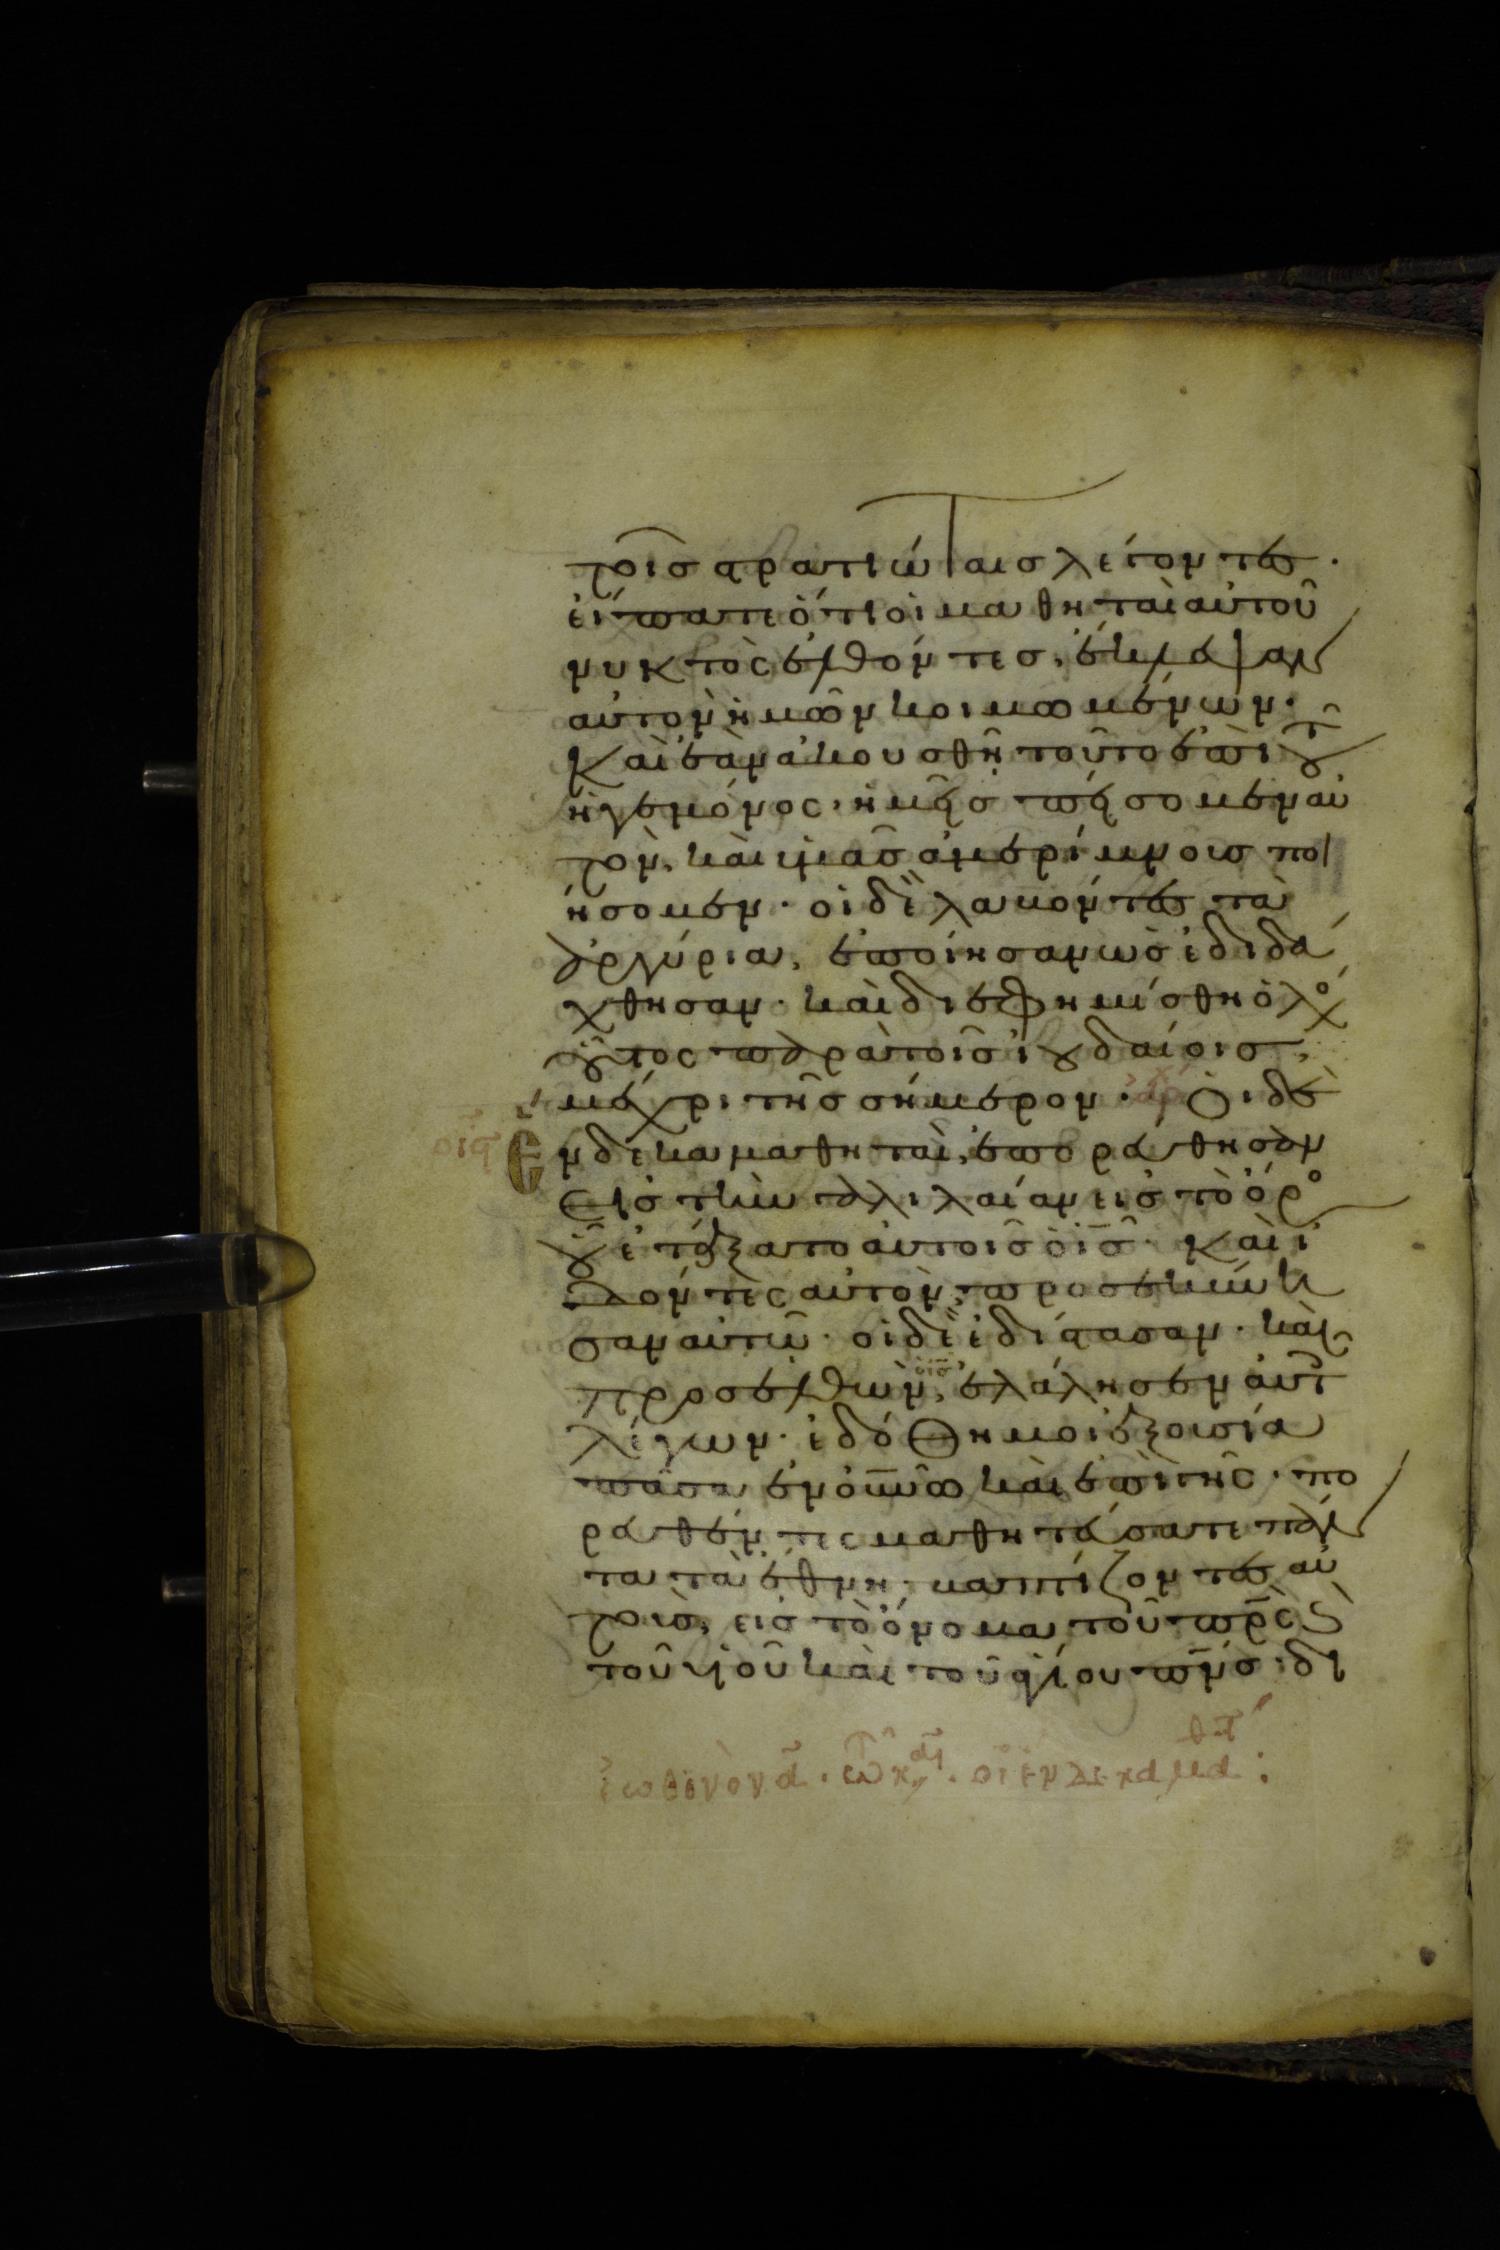 τοῖς στρατιώταις λέγοντες·
εἴπατε ὅτι οἱ μαθηταὶ αὐτοῦ
νυκτὸς ἐλθόντες, ἔκλεψαν
αὐτὸν ἡμῶν κοιμωμένων·
Καὶ ἐὰν ἀκουσθῆ τοῦτο ἐπὶ τοῦ
ἡγεμόνος, ἡμεῖς πείσομεν αὐ
τὸν, καὶ ὑμᾶς ἀμερίμνους ποι
ήσομεν· οἱ δὲ λαβόντες τὰ
ἀργύρια, ἐποίησαν ὡς ἐδιδά
χθησαν· καὶ διεφημίσθη ὁ λόγος
οὗτος παρὰ τοῖς ἰουδαίοις,
μέχρι τῆς σήμερον· Οἱ δὲ
ἕνδεκα μαθηταὶ, ἐπορεύθησαν
εἰς τὴν γαλιλαίαν εἰς τὸ ὄρος
οὗ ἐτάξατο αὐτοῖς ὁ ι̅ς̅· Καὶ ἰ
δόντες αὐτὸν, προσεκύνη
σαν αὐτῶ· οἱ δὲ ἐδίστασαν· καὶ
προσελθὼν ὁ ι̅ς̅, ἐλάλησεν αὐτοῖς
λέγων· ἐδόθη μοι ἐξουσία
πᾶσα ἐν ὀυ̅ν̅ω̅ καὶ ἐπὶ γῆς· πο
ρευθέντες μαθητεύσατε πάν
τα τὰ ἔθνη· βαπτίζοντες αὐ
τοὺς, εἰς τὸ ὄνομα τοῦ π̅ρ̅ς̅ καὶ
τοῦ υἱοῦ καὶ τοῦ ἁγίου π̅ν̅ς̅· δι
ἑωθινὸν α̅· τῶ κ· οἱ ἕνδεκα μαθηταί: